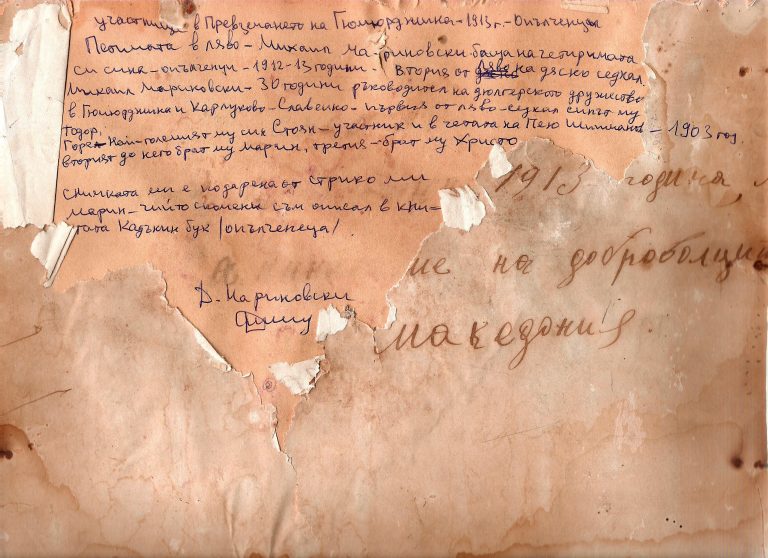 участници в Превземането на Гюмюрджина - 1913 г. - Опълченци
Петимата в ляво - Михаил Мариновски - баща на четиримата
си сина - опълченци - 1912-13 години. Втория от ляво на дясно седнал
Михаил Мариновски - 30 години ръководител на дюлгерското дружество
в Гюмюрджина и Карлуково - Славейно - първия от ляво - седнал синът му
Тодор,
Горе най-големият му син Стоян - участник и в четата на Пею Шишманов - 1903 год.
вторият до него брат му Марин, третия - брат му Христо
Снимката ми е подарена от стрико ми
Марин - чиито спомени съм описал в кни-
гата Кадъкин бук /опълченеца/
Д. Мариновски
1913 година,
ие на доброволци
Македония.